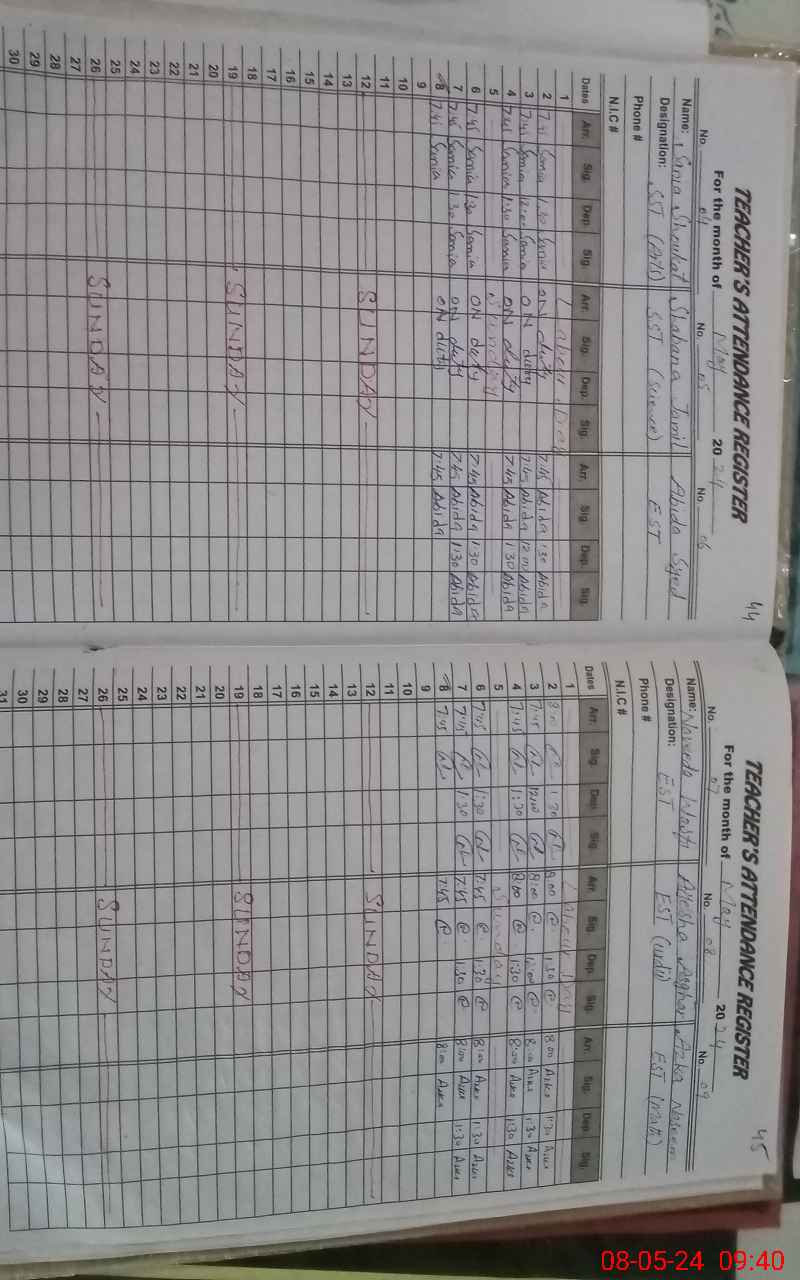 44
TEACHER'S ATTENDANCE REGISTER
For the month of May 2024
No. 04 No. 05 No. 06
Name: Samia Shoukat Shabana Jamil Abida Syed
Designation: SST (Arts) SST (Science) EST
Phone #
N.I.C #
Dates Arr. Sig. Dep. Sig. Arr. Sig. Dep. Sig. Arr. Sig. Dep. Sig.
1 Labour Day
2 7:45 Samia 1:30 Samia ON duty 7:45 Abida 1:30 Abida
3 7:45 Samia 12:00 Samia ON duty 7:45 Abida 12:00 Abida
4 7:45 Samia 1:30 Samia ON duty 7:45 Abida 1:30 Abida
5 Sunday
6 7:45 Samia 1:30 Samia ON duty 7:45 Abida 1:30 Abida
7 7:45 Samia 1:30 Samia ON duty 7:45 Abida 1:30 Abida
8 7:45 Samia ON duty 7:45 Abida
9
10
11
12 SUNDAY
13
14
15
16
17
18
19 SUNDAY
20
21
22
23
24
25
26 SUNDAY
27
28
29
30
45
TEACHER'S ATTENDANCE REGISTER
For the month of May 2024
No. 07 No. 08 No. 09
Name: Ayesha Asghar Azka Naseem
Designation: EST EST (Urdu) EST (Math)
Phone #
N.I.C #
Dates Arr. Sig. Dep. Sig. Arr. Sig. Dep. Sig. Arr. Sig. Dep. Sig.
1 Labour Day
2 8:00 1:30 8:00 1:30 8:00 Azka 1:30 Azka
3 7:45 12:00 8:00 12:00 8:00 Azka 1:30 Azka
4 7:45 1:30 8:00 1:30 8:00 Azka 1:30 Azka
5 Sunday
6 7:45 1:30 7:45 1:30 8:00 Azka 1:30 Azka
7 7:45 1:30 7:45 1:30 8:00 Azka 1:30 Azka
8 7:45 7:45 8:00 Azka
9
10
11
12 SUNDAY
13
14
15
16
17
18
19 SUNDAY
20
21
22
23
24
25
26 SUNDAY
27
28
29
30
31
08-05-24 09:40